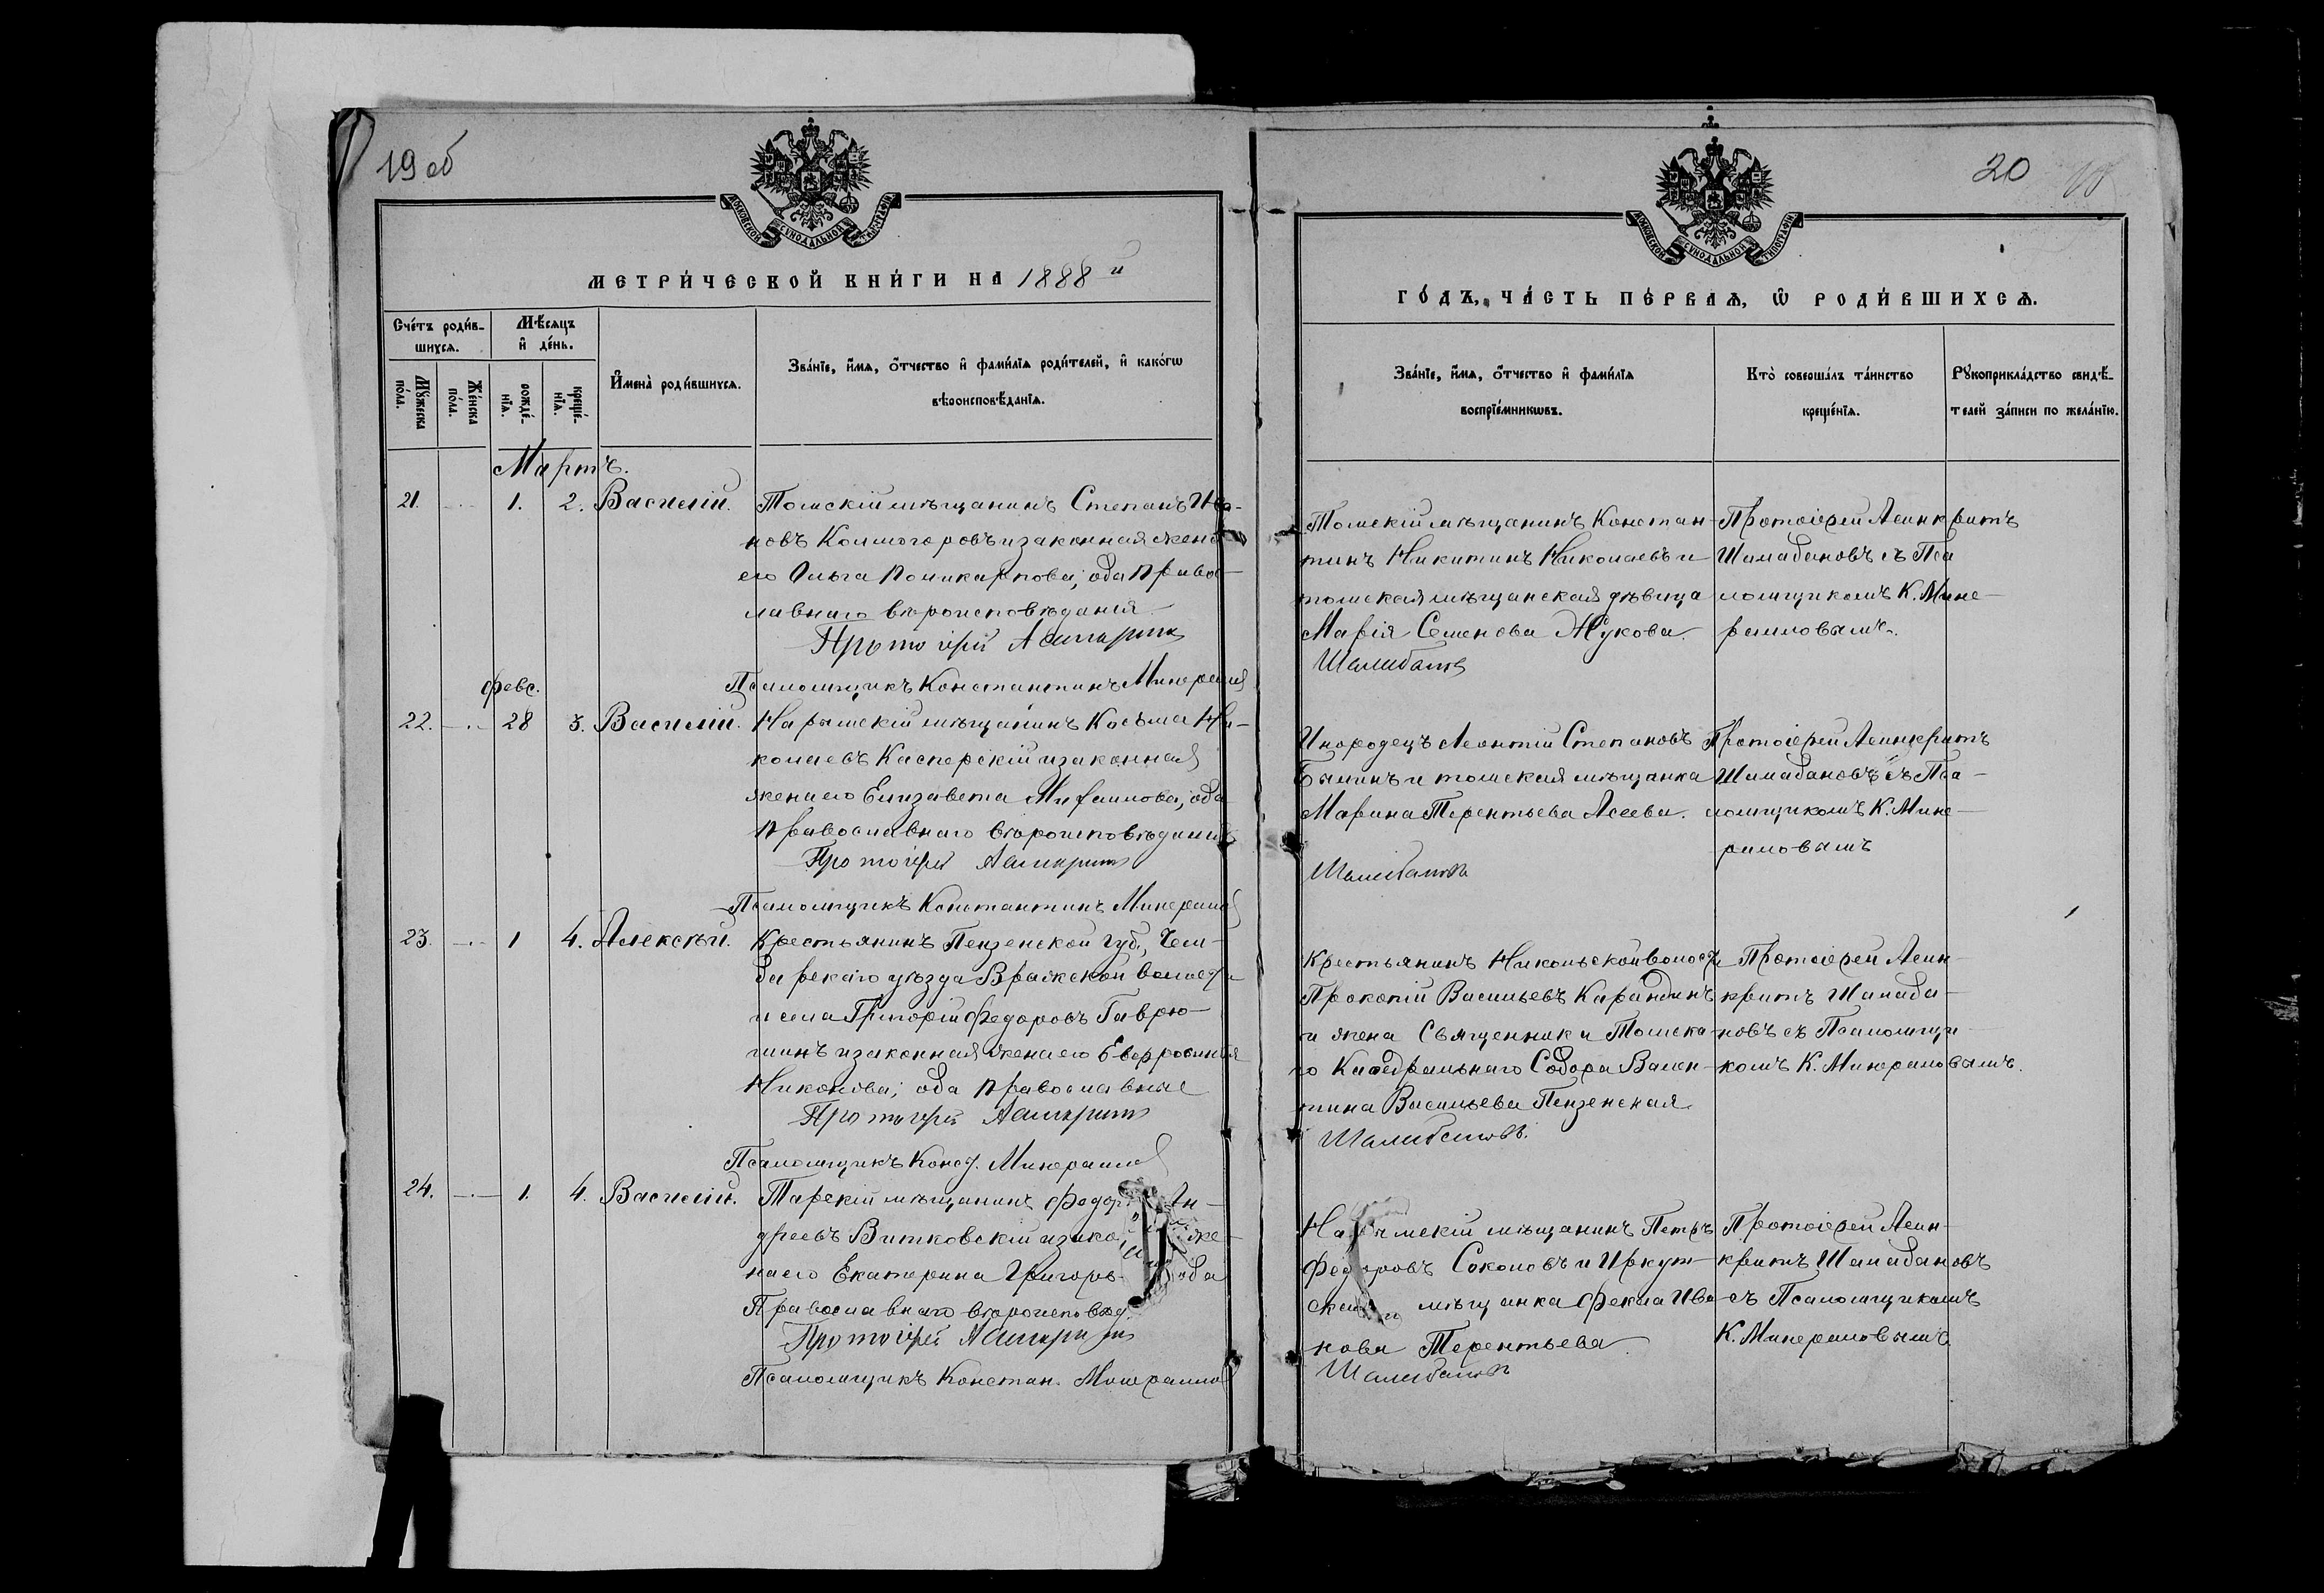 19 об
МОСКОВСКОЙ СУНОДАЛЬНОЙ ТИПОГРАФІИ
МЕТРИ́ЧЕСКОЙ КНИ́ГИ НА 1888й
Сче́тъ роди́в-
шихсѧ.
Мꙋжеска
по́ла.
Же́нска
по́ла.
Мѣ́сѧцъ
и҆ де́нь.
рожде́-
нїѧ.
креще́-
нїѧ.
И҆мена̀ роди́вшихсѧ.
Зва́нїе, и҆́мѧ, ѻ҆́тчество и҆ фами́лїѧ роди́телей, и҆ како́гѡ
вѣроисповѣ́данїѧ.
Мартъ.
21. 1. 2. Василій. Томскій мѣщанинъ Степанъ Ива-
новъ Колмогоровъ и законная жена
его Ольга Поликарпова; оба право-
славнаго вѣроисповѣданія
Протоіерей Асинкритъ
Псаломщикъ Константинъ Минераловъ
февр.
22. 28 3. Василій. Нарымскій мѣщанинъ Косьма Ни-
колаевъ Касперскій и законная
жена его Елизавета Михаилова; оба
православнаго вѣроисповѣданія
Протоіерей Асинкритъ
Псаломщикъ Константинъ Минераловъ
23. 1 4. Алексѣй. Крестьянинъ Пензенской губ., Чем-
барскаго уѣзда Вражской волости
и села Григорій Федоровъ Гаврю-
шинъ и законная жена его Евфросинія
Никонова; оба православные
Протоіерей Асинкритъ
Псаломщикъ Конст. Минераловъ
24. 1. 4. Василій. Тарскій мѣщанинъ Ан-
дреевъ Витковскій и же-
на его Екатерина оба
Православнаго вѣроисповѣд.
Протоіерей Асинкритъ
Псаломщикъ Констан. Минераловъ
20
МОСКОВСКОЙ СУНОДАЛЬНОЙ ТИПОГРАФІИ
ГО́ДЪ, ЧА́СТЬ ПЕ́РВАѦ, Ѡ҆ РОДИ́ВШИХСѦ.
Зва́нїе, и҆́мѧ, ѻ҆́тчество и҆ фами́лїѧ
воспрїе́мникѡвъ.
Кто̀ соверша́лъ та́инство
креще́нїѧ.
Рꙋкоприкла́дство свидѣ́-
телей за́писи по жела́нїю.
Томскій мѣщанинъ Констан-
тинъ Никитинъ Николаевъ и
томская мѣщанская дѣвица
Марія Семенова Жукова.
Шалабановъ
Протоіерей Асинкритъ
Шалабановъ съ Пса
ломщикомъ К. Мине-
раловымъ.
Инородецъ Леонтій Степановъ
Былинъ и томская мѣщанка
Марина Терентьева Асеева.
Шалабановъ
Протоіерей Асинкритъ
Шалабановъ съ Пса-
ломщикомъ К. Мине-
раловымъ
Крестьянинъ Никольской волости
Прокопій Васильевъ Карандинъ
и жена Священника Томска-
го Каѳедральнаго Собора Вален-
тина Васильева Пензенская
Шалабановъ.
Протоіерей Асин-
критъ Шалаба-
новъ съ Псаломщи-
комъ К. Минераловымъ.
Нарымскій мѣщанинъ Петръ
Федоровъ Соколовъ и Иркут-
мѣщанка Фекла Ива-
нова Терентьева.
Шалабановъ
Протоіерей Асин-
критъ Шалабановъ
съ Псаломщикомъ
К. Минераловымъ.